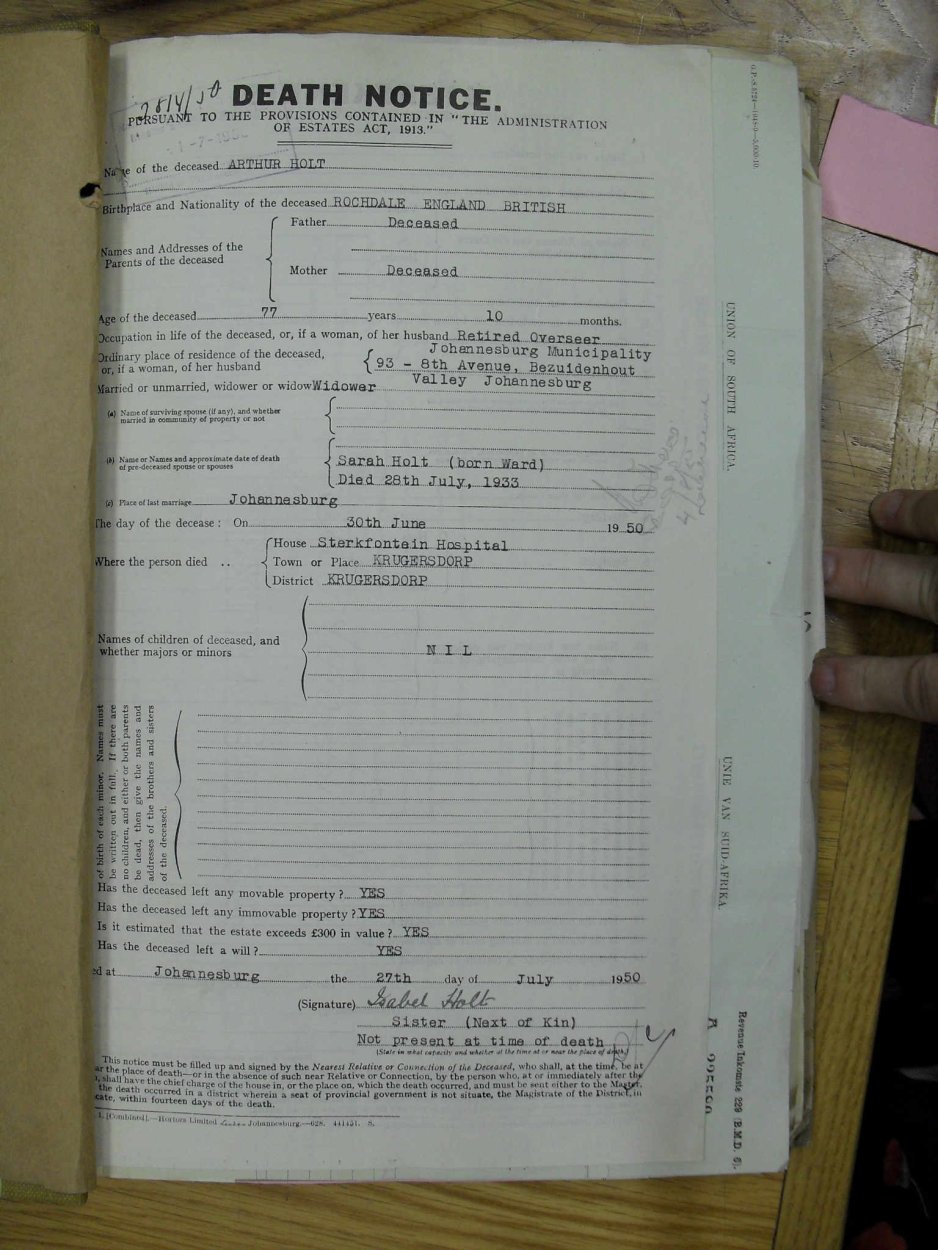 2814/50
DEATH NOTICE.
PURSUANT TO THE PROVISIONS CONTAINED IN "THE ADMINISTRATION
OF ESTATES ACT, 1913."
Name of the deceased ARTHUR HOLT
Birthplace and Nationality of the deceased ROCHDALE ENGLAND BRITISH
Names and Addresses of the
Parents of the deceased
Father Deceased
Mother Deceased
Age of the deceased 77 years 10 months.
Occupation in life of the deceased, or, if a woman, of her husband Retired Overseer
Johannesburg Municipality
Ordinary place of residence of the deceased,
or, if a woman, of her husband
93 - 8th Avenue, Bezuidenhout
Valley Johannesburg
Married or unmarried, widower or widow Widower
(a) Name of surviving spouse (if any), and whether
married in community of property or not
(b) Name or Names and approximate date of death
of pre-deceased spouse or spouses
Sarah Holt (born Ward)
Died 28th July, 1933
(c) Place of last marriage Johannesburg
The day of the decease: On 30th June 1950
Where the person died ..
House Sterkfontein Hospital
Town or Place KRUGERSDORP
District KRUGERSDORP
Names of children of deceased, and
whether majors or minors
N I L
of birth of each minor. Names must
be written out in full. If there are
no children, and either or both parents
be dead, then give the names and
addresses of the brothers and sisters
of the deceased.
Has the deceased left any movable property? YES
Has the deceased left any immovable property? YES
Is it estimated that the estate exceeds £300 in value? YES
Has the deceased left a will? YES
ed at Johannesburg the 27th day of July 1950
(Signature) Isabel Holt
Sister (Next of Kin)
Not present at time of death
(State in what capacity and whether at the time at or near the place of death.)
This notice must be filled up and signed by the Nearest Relative or Connection of the Deceased, who shall, at the time, be at
ar the place of death—or in the absence of such near Relative or Connection, by the person who, at or immediately after the
, shall have the chief charge of the house in, or the place on, which the death occurred, and must be sent either to the Master,
the death occurred in a district wherein a seat of provincial government is not situate, the Magistrate of the District, in
cate, within fourteen days of the death.
[Combined].—Hortors Limited Johannesburg.—628. 441451. S.
UNION OF SOUTH AFRICA.
UNIE VAN SUID-AFRIKA
Revenue Inkomste 229 (B.M.D. 6).